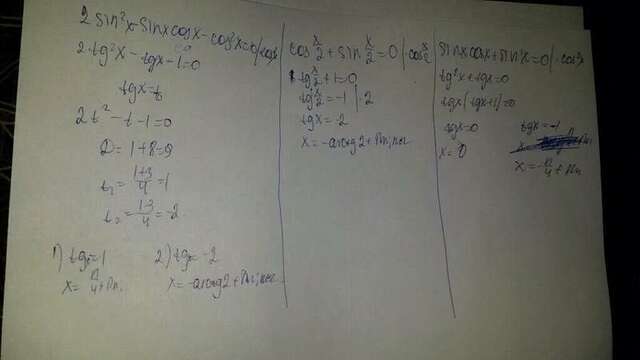 2 sin²x - sinx cosx - cos²x = 0 / cos²x
2 tg²x - tgx - 1 = 0
tgx = t
2t² - t - 1 = 0
D = 1 + 8 = 9
t₁ = (1+3)/4 = 1
t₂ = (1-3)/4 = -2
1) tgx = 1
x = π/4 + πn.
2) tgx = -2
x = -arctg2 + πn; n∈z
cos x/2 + sin x/2 = 0 | cos x/2
tg x/2 + 1 = 0
tg x/2 = -1 | ·2
tgx = -2
x = -arctg 2 + πn, n∈z
sinx cosx + sin²x = 0 / · cos²x
tg²x + tgx = 0
tgx (tgx + 1) = 0
tgx = 0
x = 0
tgx = -1
x = -π/4 + πn